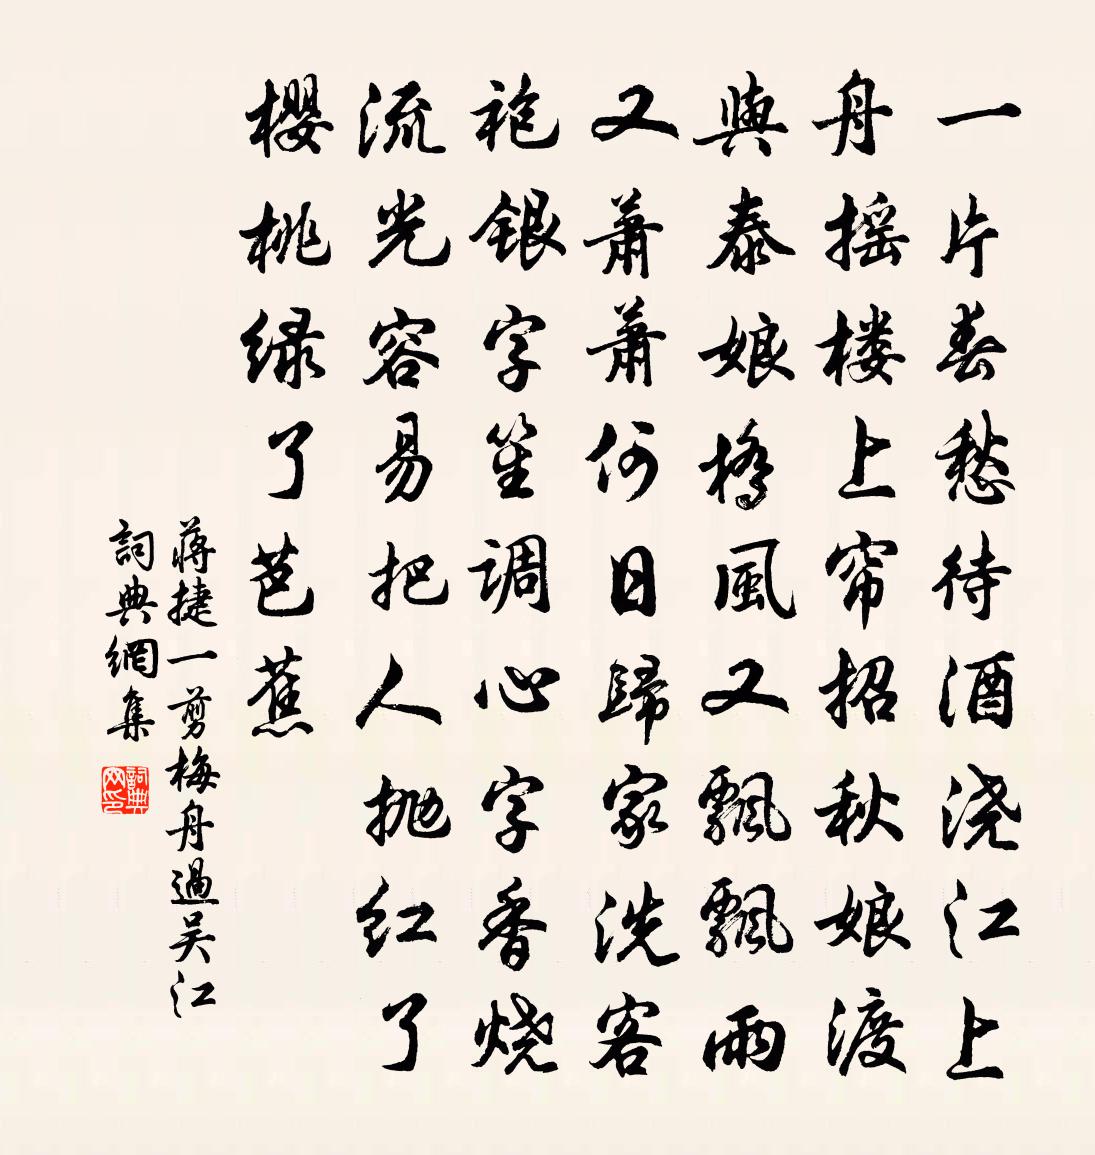 一片春愁待酒浇江上
舟摇楼上帘招秋娘渡
與泰娘橋風又飄飄雨
又蕭蕭何日歸家洗客
袍银字笙调心字香烧
流光容易把人抛红了
櫻桃绿了芭蕉
蔣捷一剪梅舟過吴江
詞典網集
詞典
网印